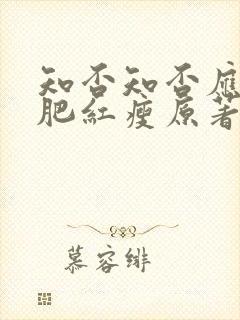 知否知否應
肥紅瘦原著
慕容绯